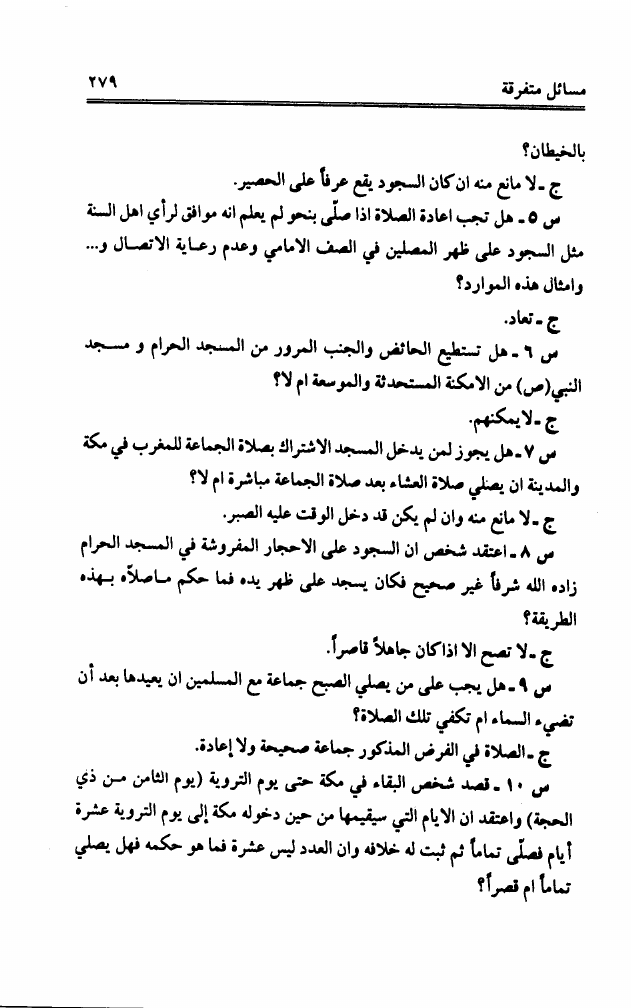 مسائل متفرقة ٢٧٩
بالخيطان؟
ج ـ لا مانع منه ان كان السجود يقع عرفاً على الحصير.
س ٥ ـ هل تجب اعادة الصلاة اذا صلّى بنحو لم يعلم انه موافق لرأي اهل السنة
مثل السجود على ظهر المصلين في الصف الامامي وعدم رعاية الاتصال و...
وامثال هذه الموارد؟
ج ـ تعاد.
س ٦ ـ هل تستطيع الحائض والجنب المرور من المسجد الحرام و مسجد
النبي(ص) من الامكنة المستحدثة والموسعة ام لا؟
ج ـ لا يمكنهم.
س ٧ ـ هل يجوز لمن يدخل المسجد الاشتراك بصلاة الجماعة للمغرب في مكة
والمدينة ان يصلي صلاة العشاء بعد صلاة الجماعة مباشرة ام لا؟
ج ـ لا مانع منه وان لم يكن قد دخل الوقت عليه الصبر.
س ٨ ـ اعتقد شخص ان السجود على الاحجار المفروشة في المسجد الحرام
زاده الله شرفاً غير صحيح فكان يسجد على ظهر يده فما حكم ماصلاّه بهذه
الطريقة؟
ج ـ لا تصح الا اذا كان جاهلاً قاصراً.
س ٩ ـ هل يجب على من يصلي الصبح جماعة مع المسلمين ان يعيدها بعد أن
تضيء السماء ام تكفي تلك الصلاة؟
ج ـ الصلاة في الفرض المذكور جماعة صحيحة ولا إعادة.
س ١٠ ـ قصد شخص البقاء في مكة حتى يوم التروية (يوم الثامن من ذي
الحجة) واعتقد ان الايام التي سيقيمها من حين دخوله مكة إلى يوم التروية عشرة
أيام فصلّى تماماً ثم ثبت له خلافه وان العدد ليس عشرة فما هو حكمه فهل يصلي
تماماً ام قصراً؟